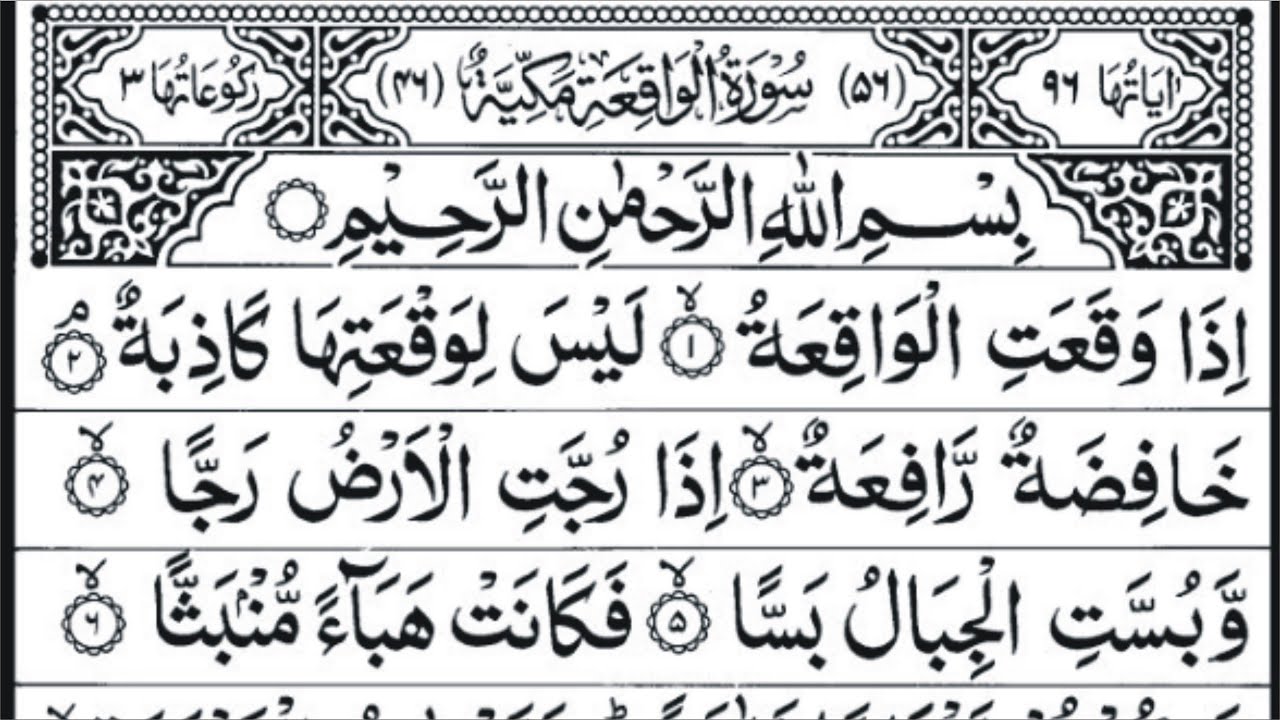 اٰیَاتُهَا ٩٦ (٥٦) سُوْرَةُ الْوَاقِعَةِ مَكِّيَّةٌ (٤٦) رُكُوْعَاتُهَا ٣
بِسْمِ اللّٰهِ الرَّحْمٰنِ الرَّحِيْمِ
اِذَا وَقَعَتِ الْوَاقِعَةُ ۙ‏ ١ لَيْسَ لِوَقْعَتِهَا كَاذِبَةٌ ۘ‏ ٢
خَافِضَةٌ رَّافِعَةٌ ۙ‏ ٣ اِذَا رُجَّتِ الْاَرْضُ رَجًّا ۙ‏ ۴
وَّبُسَّتِ الْجِبَالُ بَسًّا ۙ‏ ۵ فَكَانَتْ هَبَآءً مُّنْۢبَثًّا ۙ‏ ۶